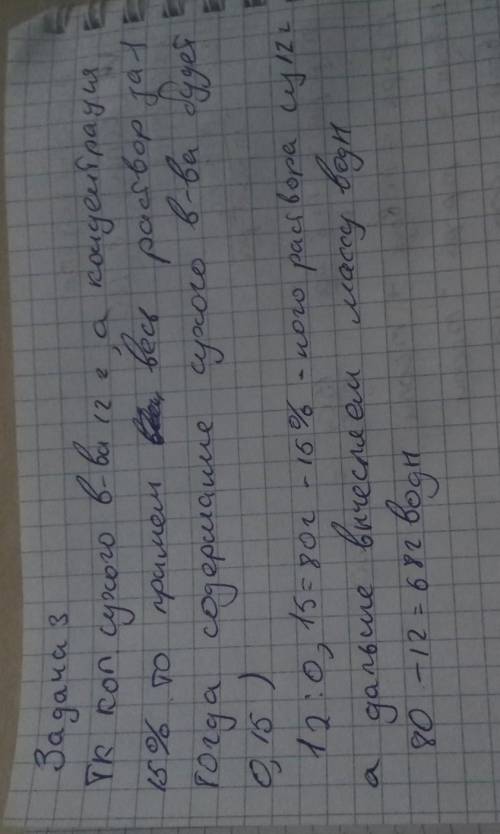 Задача 3
Тк кол. сухого в-ва 12 г, а концентрация
15% то примем весь раствор за 1
тогда содержание сухого в-ва будет
0,15)
12:0,15=80г - 15% - ного раствора из 12г
а дальше вычесляем массу воды
80 - 12 = 68г воды